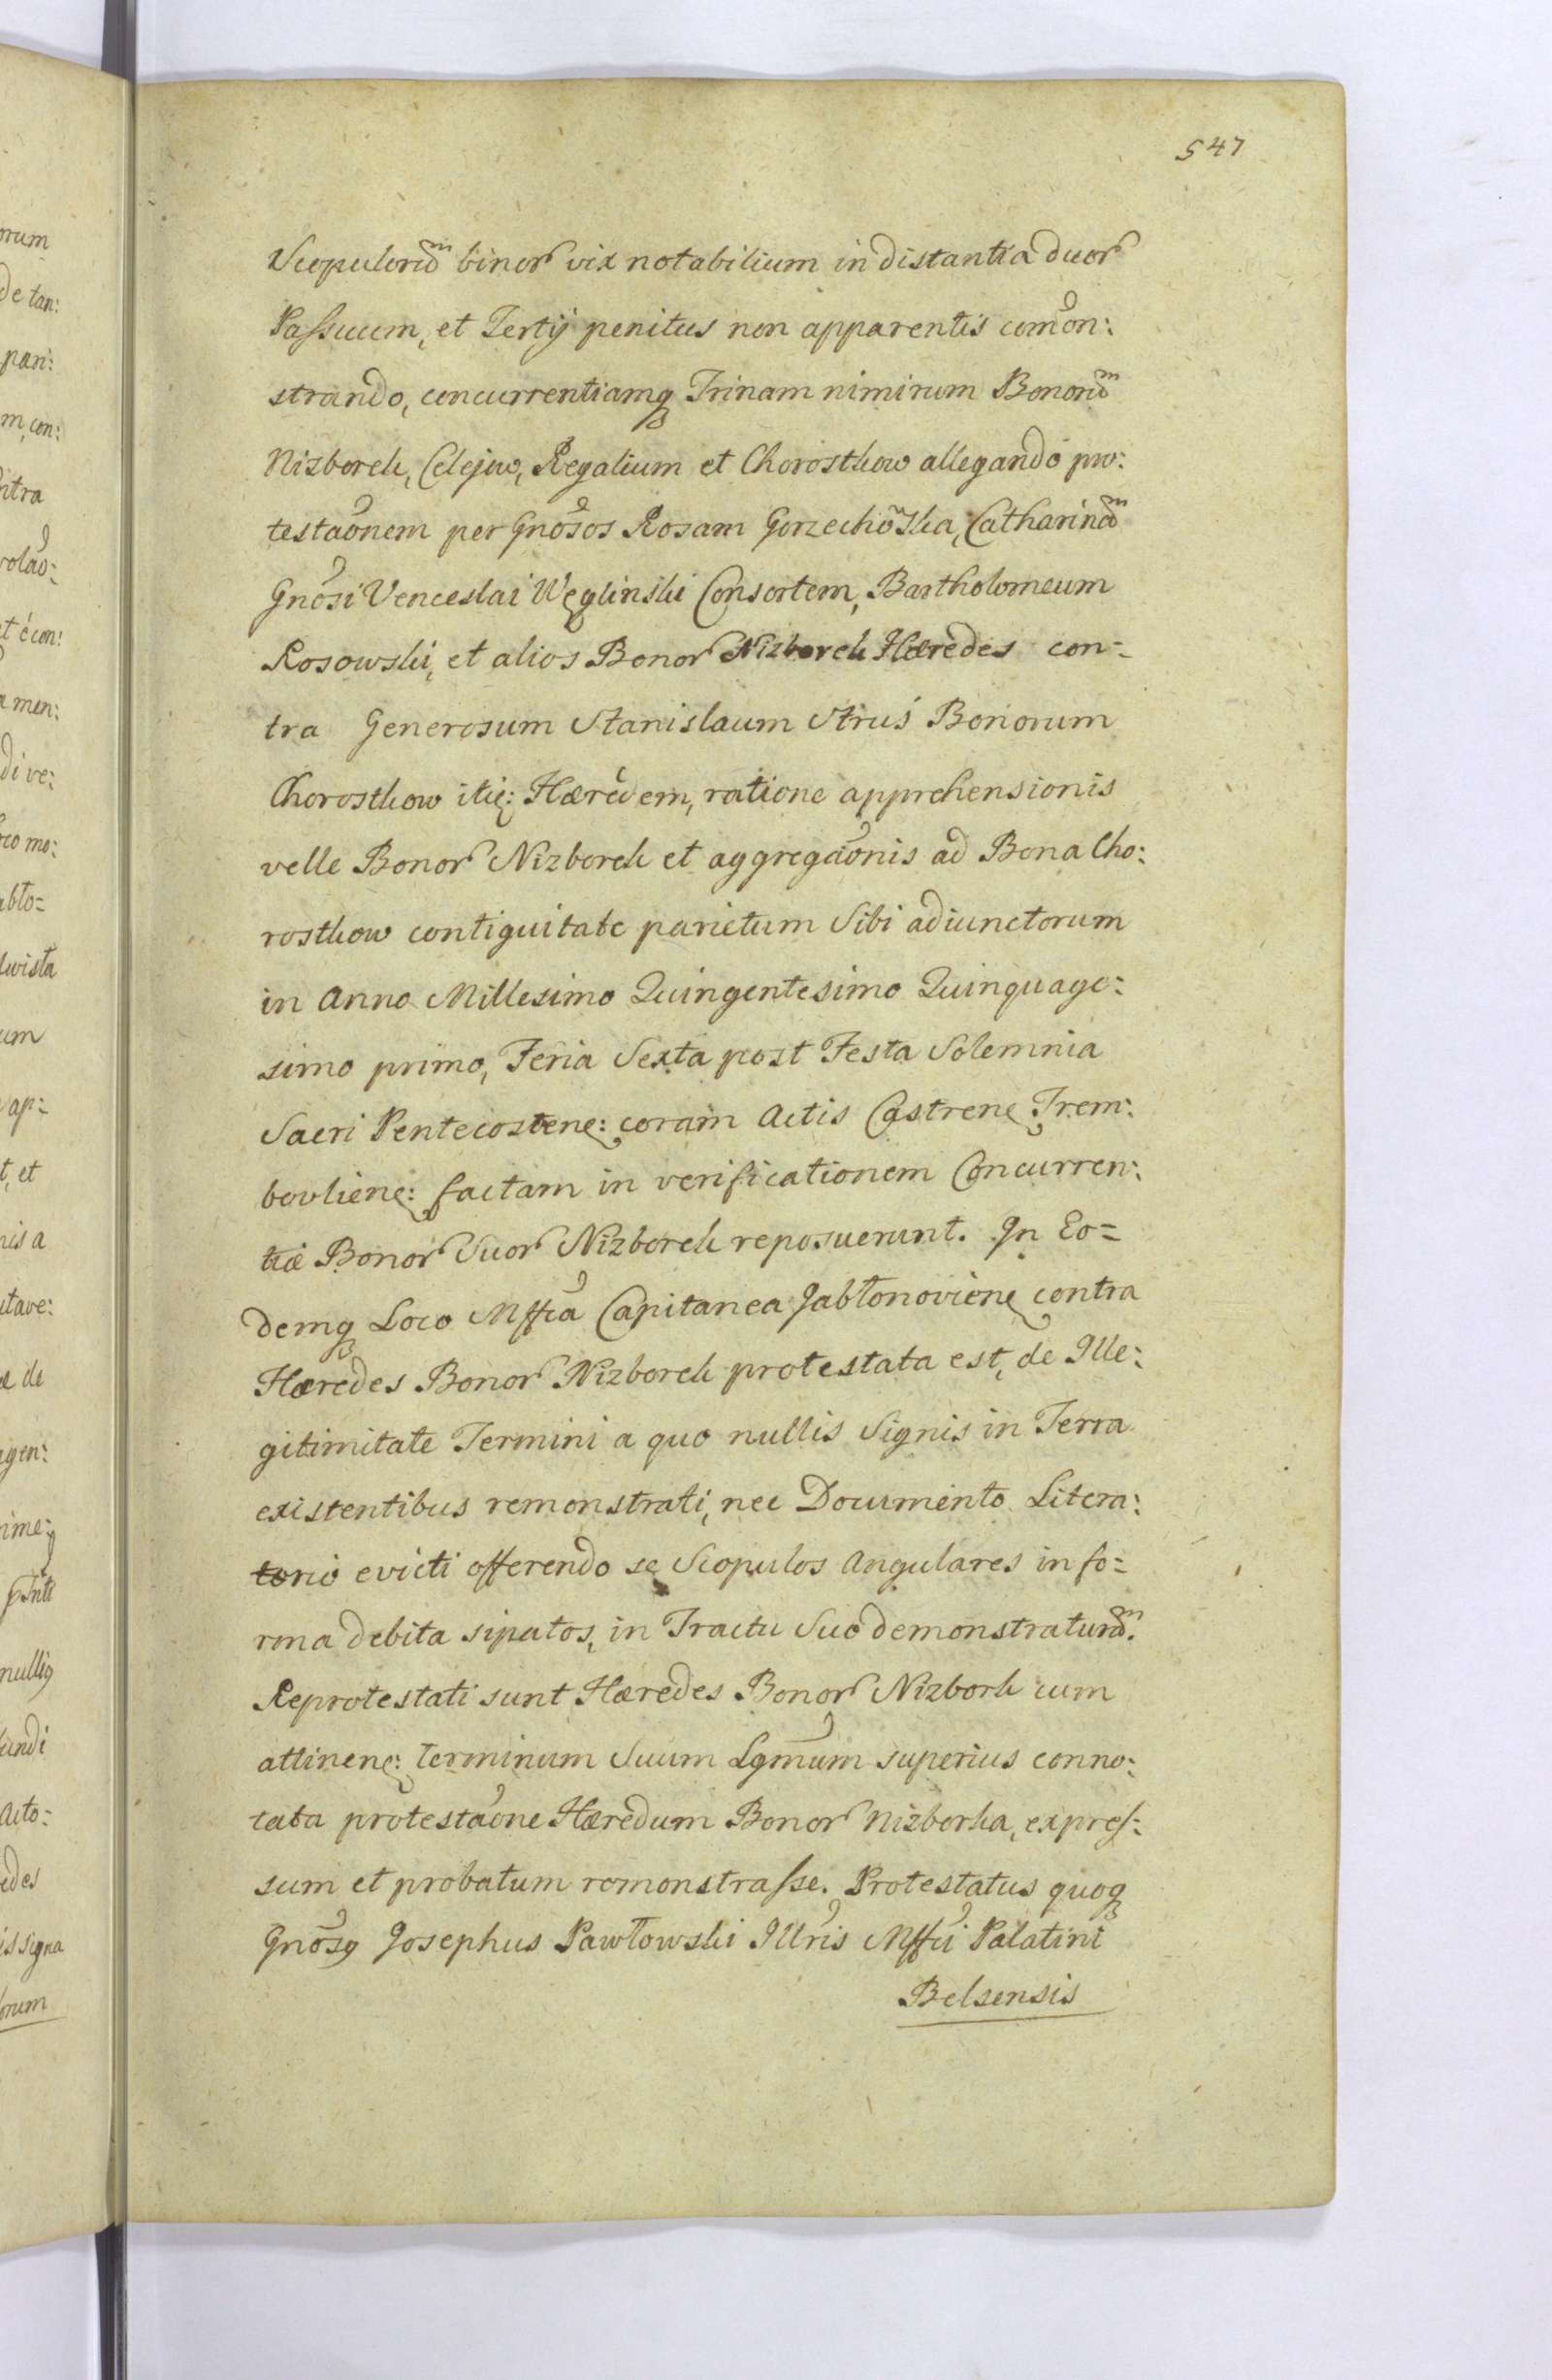 547
Scopuloru͠m binor͠ vix notabilium in distantia duor͠
Passuum, et Tertij penitus non apparentis como͠n:
strando, concurrentiamq́ Trinam nimirum Bonoru͠m
Nizborek, Celejow, Regalium et Chorostkow allegando pro:
testao͠nem per Gno͠sos Rosam Gorzecho͠ska, Catharina͠m
Gno͠si Venceslai Węglinski Consortem, Bartholomeum
Rosowski, et alios Bonor͠ Nizborek Hæredes con=
tra Generosum Stanislaum Struś Bonorum
Chorostkow itię: Hæredem, ratione apprehensionis
velle Bonor͠ Nizborek et aggregao͠nis ad Bona Cho:
rostkow contiguitate parietum Sibi adiunctorum
in Anno Millesimo Quingentesimo Quinquage:
simo primo, Feria Sexta post Festa Solemnia
Sacri Pentecostenę: coram Actis Castrenę Trem:
bovlienę: factam in verificationem Concurren:
tiæ Bonor͠ Suor͠ Nizborek reposuerunt. In Eo=
demq́ Loco Mffca͠ Capitanea Jabłonovienę contra
Hæredes Bonor͠ Nizborek protestata est, de Ille:
gitimitate Termini a quo nullis Signis in Terra
existentibus remonstrati, nec Documento Litera:
torio evicti offerendo se Scopulos Angulares in fo=
rma debita sipatos, in Tractu Suo demonstratura͠m.
Reprotestati sunt Hæredes Bonor͠ Nizbork cum
attinenę: terminum Suum Lgmu͠m superius conno:
tata protestao͠ne Hæredum Bonor͠ Nizborka, expres:
sum et probatum remonstrasse. Protestatus quoq́
Gno͠sꝰ Josephus Pawłowski Illris͠ Mffci͠ Palatini
Belsensis